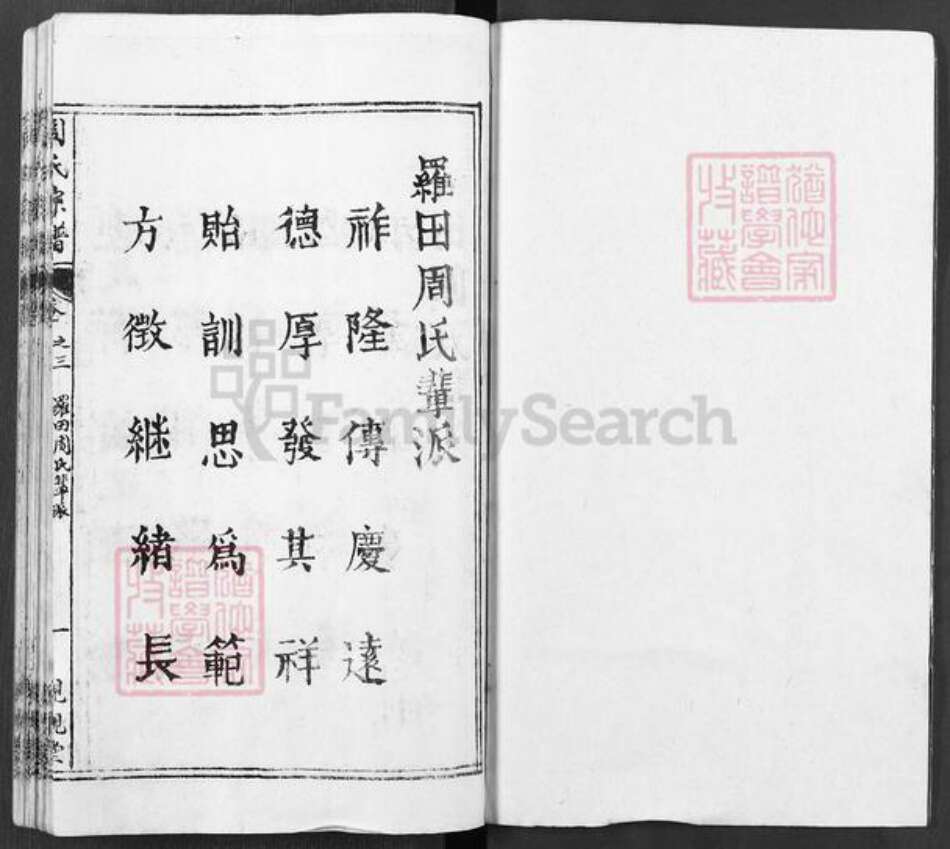 羅田周氏輩派
祚隆傳慶遠
德厚發其祥
貽訓思爲範
方徵継緒長
周氏宗譜
卷之三
羅田周氏輩派
一
譜學會
收藏
譜學會
收藏
FamilySearch